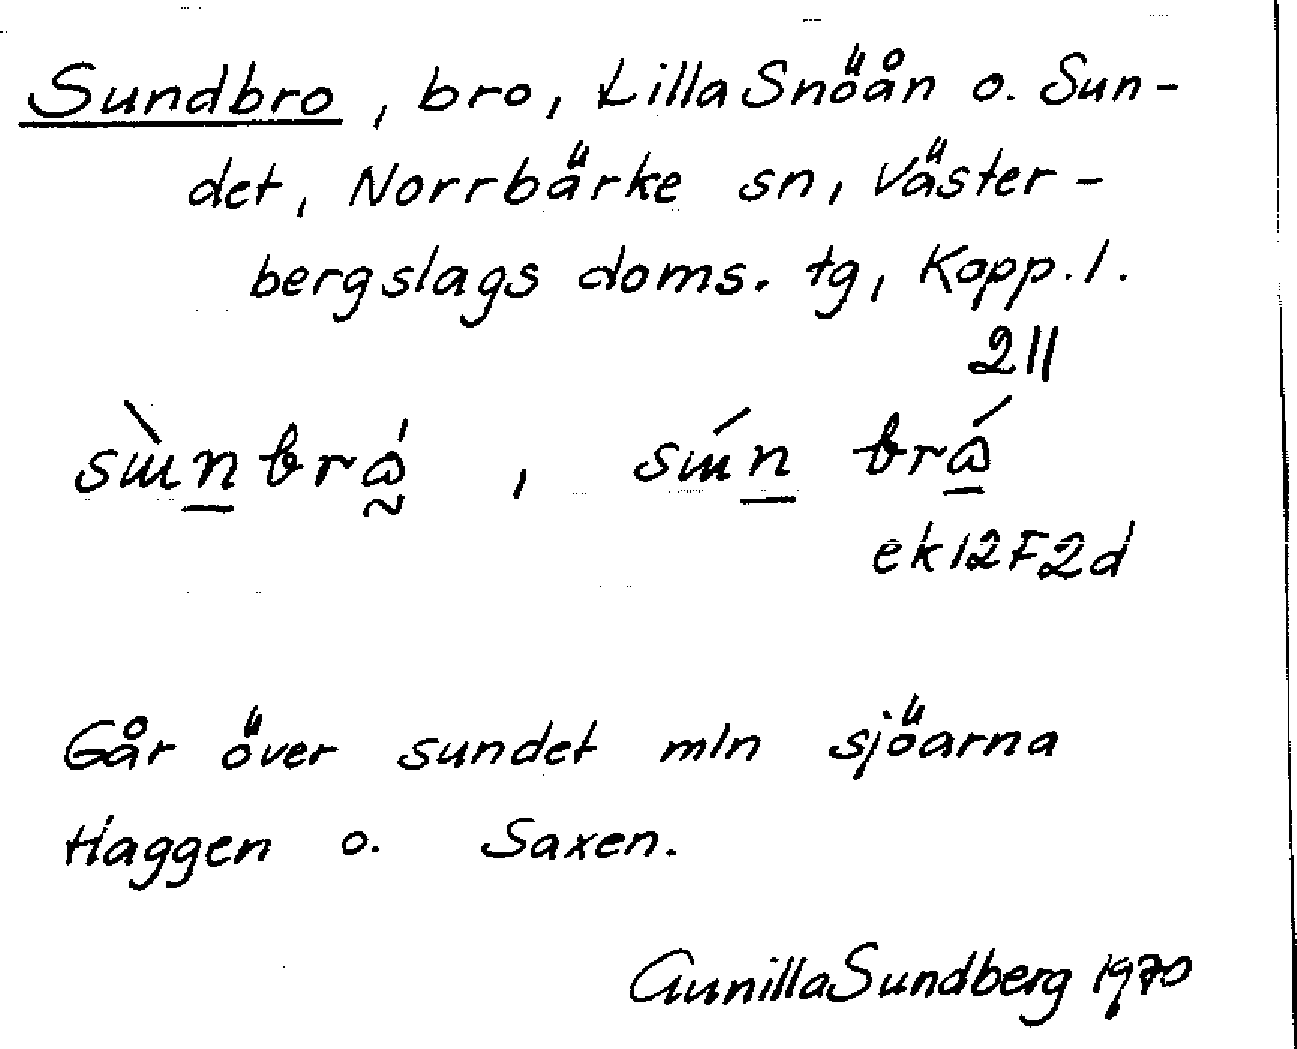 Sundbro, bro, Lilla Snöån o. Sun-
det, Norrbärke sn, Väster-
bergslags doms. tg, Kopp. l.
211
ek12F2d
Går över sundet mln sjöarna
Haggen o. Saxen.
Gunilla Sundberg 1970